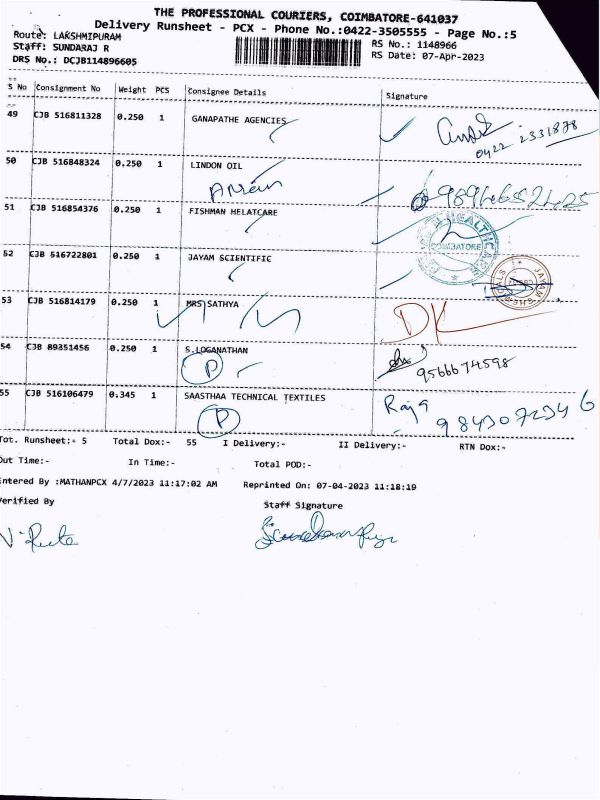 THE PROFESSIONAL COURIERS, COIMBATORE-641037
Delivery Runsheet - PCX - Phone No.:0422-3505555 - Page No.:5
Route: LAKSHMIPURAM
Staff: SUNDARAJ R
DRS No.: DCJB114896605
RS No.: 1148966
RS Date: 07-Apr-2023
S No Consignment No Weight PCS Consignee Details Signature
49 CJB 516811328 0.250 1 GANAPATHE AGENCIES
0422 2331878
50 CJB 516848324 0.250 1 LINDON OIL
51 CJB 516854376 0.250 1 FISHMAN HELATCARE
COIMBATORE
52 CJB 516722801 0.250 1 JAYAM SCIENTIFIC
JAYAM
53 CJB 516814179 0.250 1 MRS SATHYA
DK
54 CJB 89351456 0.250 1 S.LOGANATHAN
P
9566674598
55 CJB 516106479 0.345 1 SAASTHAA TECHNICAL TEXTILES
P
Raja
9843072346
Tot. Runsheet:- 5 Total Dox:- 55 I Delivery:- II Delivery:- RTN Dox:-
Out Time:- In Time:- Total POD:-
Entered By :MATHANPCX 4/7/2023 11:17:02 AM Reprinted On: 07-04-2023 11:18:19
Verified By Staff Signature